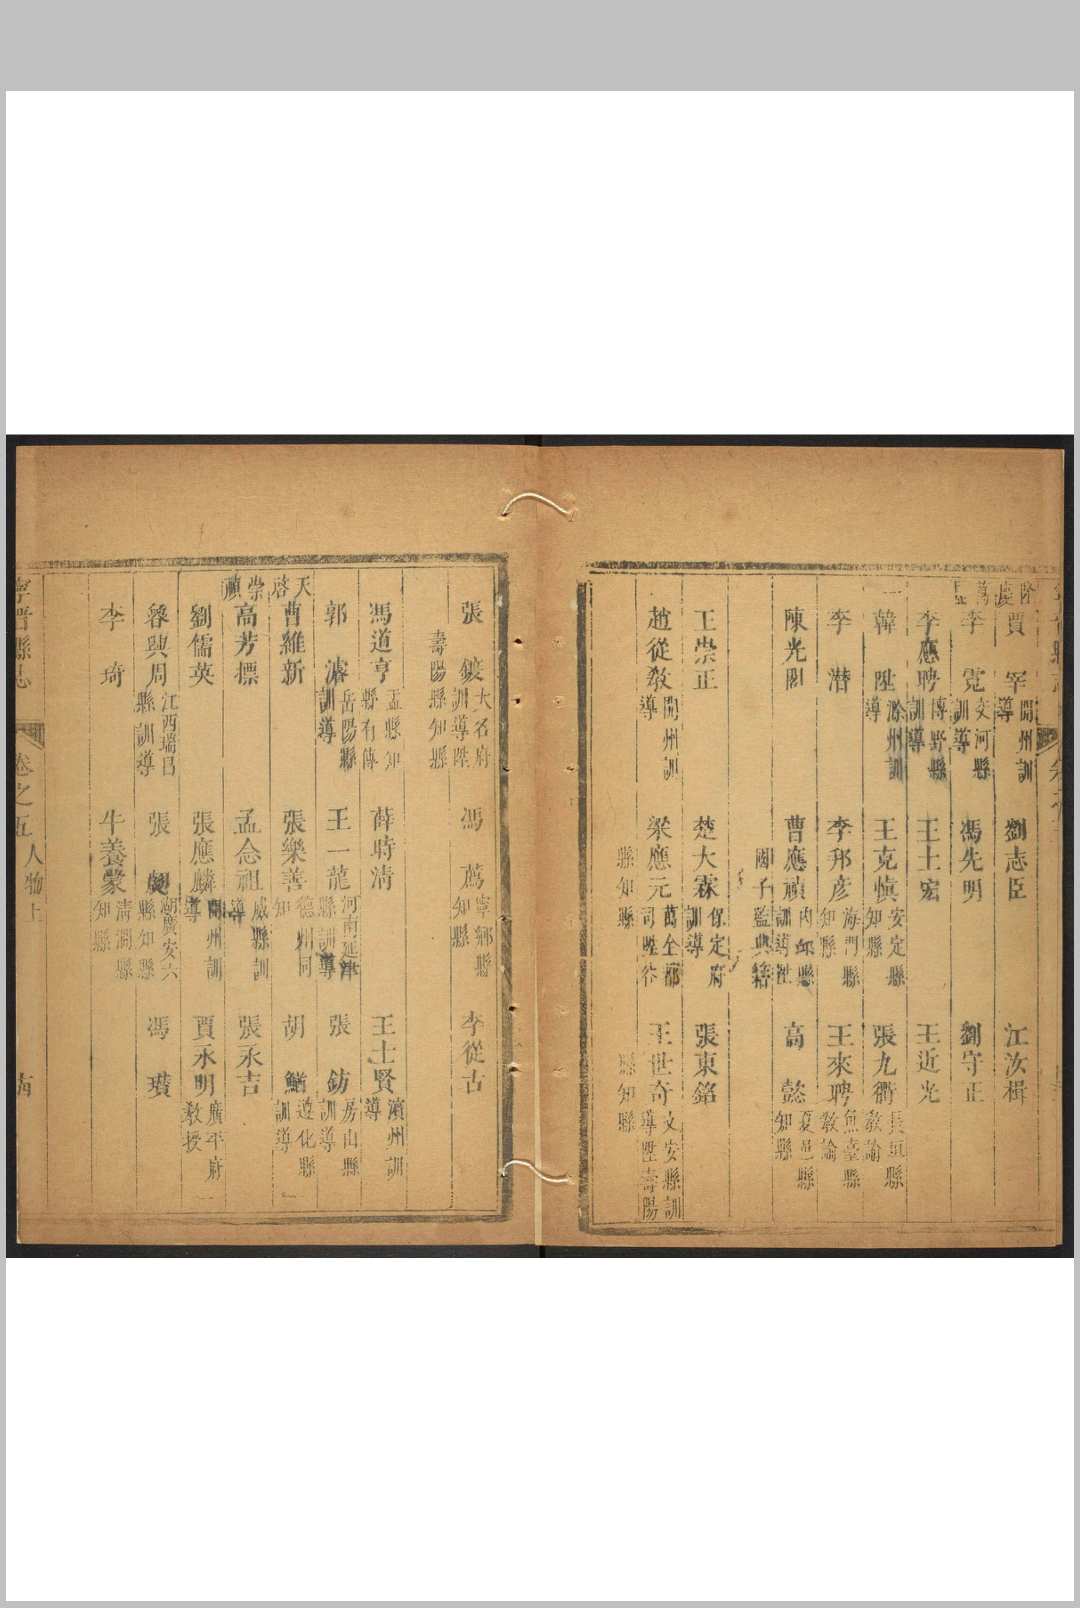 隆慶
賈 罕 開州訓導 劉志臣 江汝楫
萬
李 霓 交河縣訓導 馮先明 劉守正
李應聘 博野縣訓導 王士宏 王近光
韓 陞 滁州訓導 王克慎 安定縣知縣 張九衢 長垣縣教諭
李 潛 李邦彥 海門縣知縣 王來聘 魚臺縣教諭
陳光閣 曹應禎 內丘縣訓導陞國子監典籍 高 懿 夏邑縣知縣
王崇正 楚大霖 保定府訓導 張東銘
趙從教 開州訓導 梁應元 萬全都司陞 縣知縣 王世奇 文安縣訓導陞壽陽縣知縣
張 鑛 大名府訓導陞壽陽縣知縣 馮 薦 寧鄉縣知縣 李從古
馮道亨 孟縣知縣有傳 薛時清 王士賢 濱州訓導
郭 濬 岳陽縣訓導 王一龍 河南延津縣訓導 張 鈁 房山縣訓導
天啓
曹維新 張樂善 德州同知 胡 鰌 遵化縣訓導
崇禎
高芳標 孟念祖 威縣訓導 張永吉
劉儒英 張應麟 開州訓導 賈永明 廣平府教授
發與周 江西瑞昌縣訓導 張 湖廣安六縣知縣 馮 瓚
李 琦 牛養蒙 清澗縣知縣
寧晉縣志 卷之五 人物上